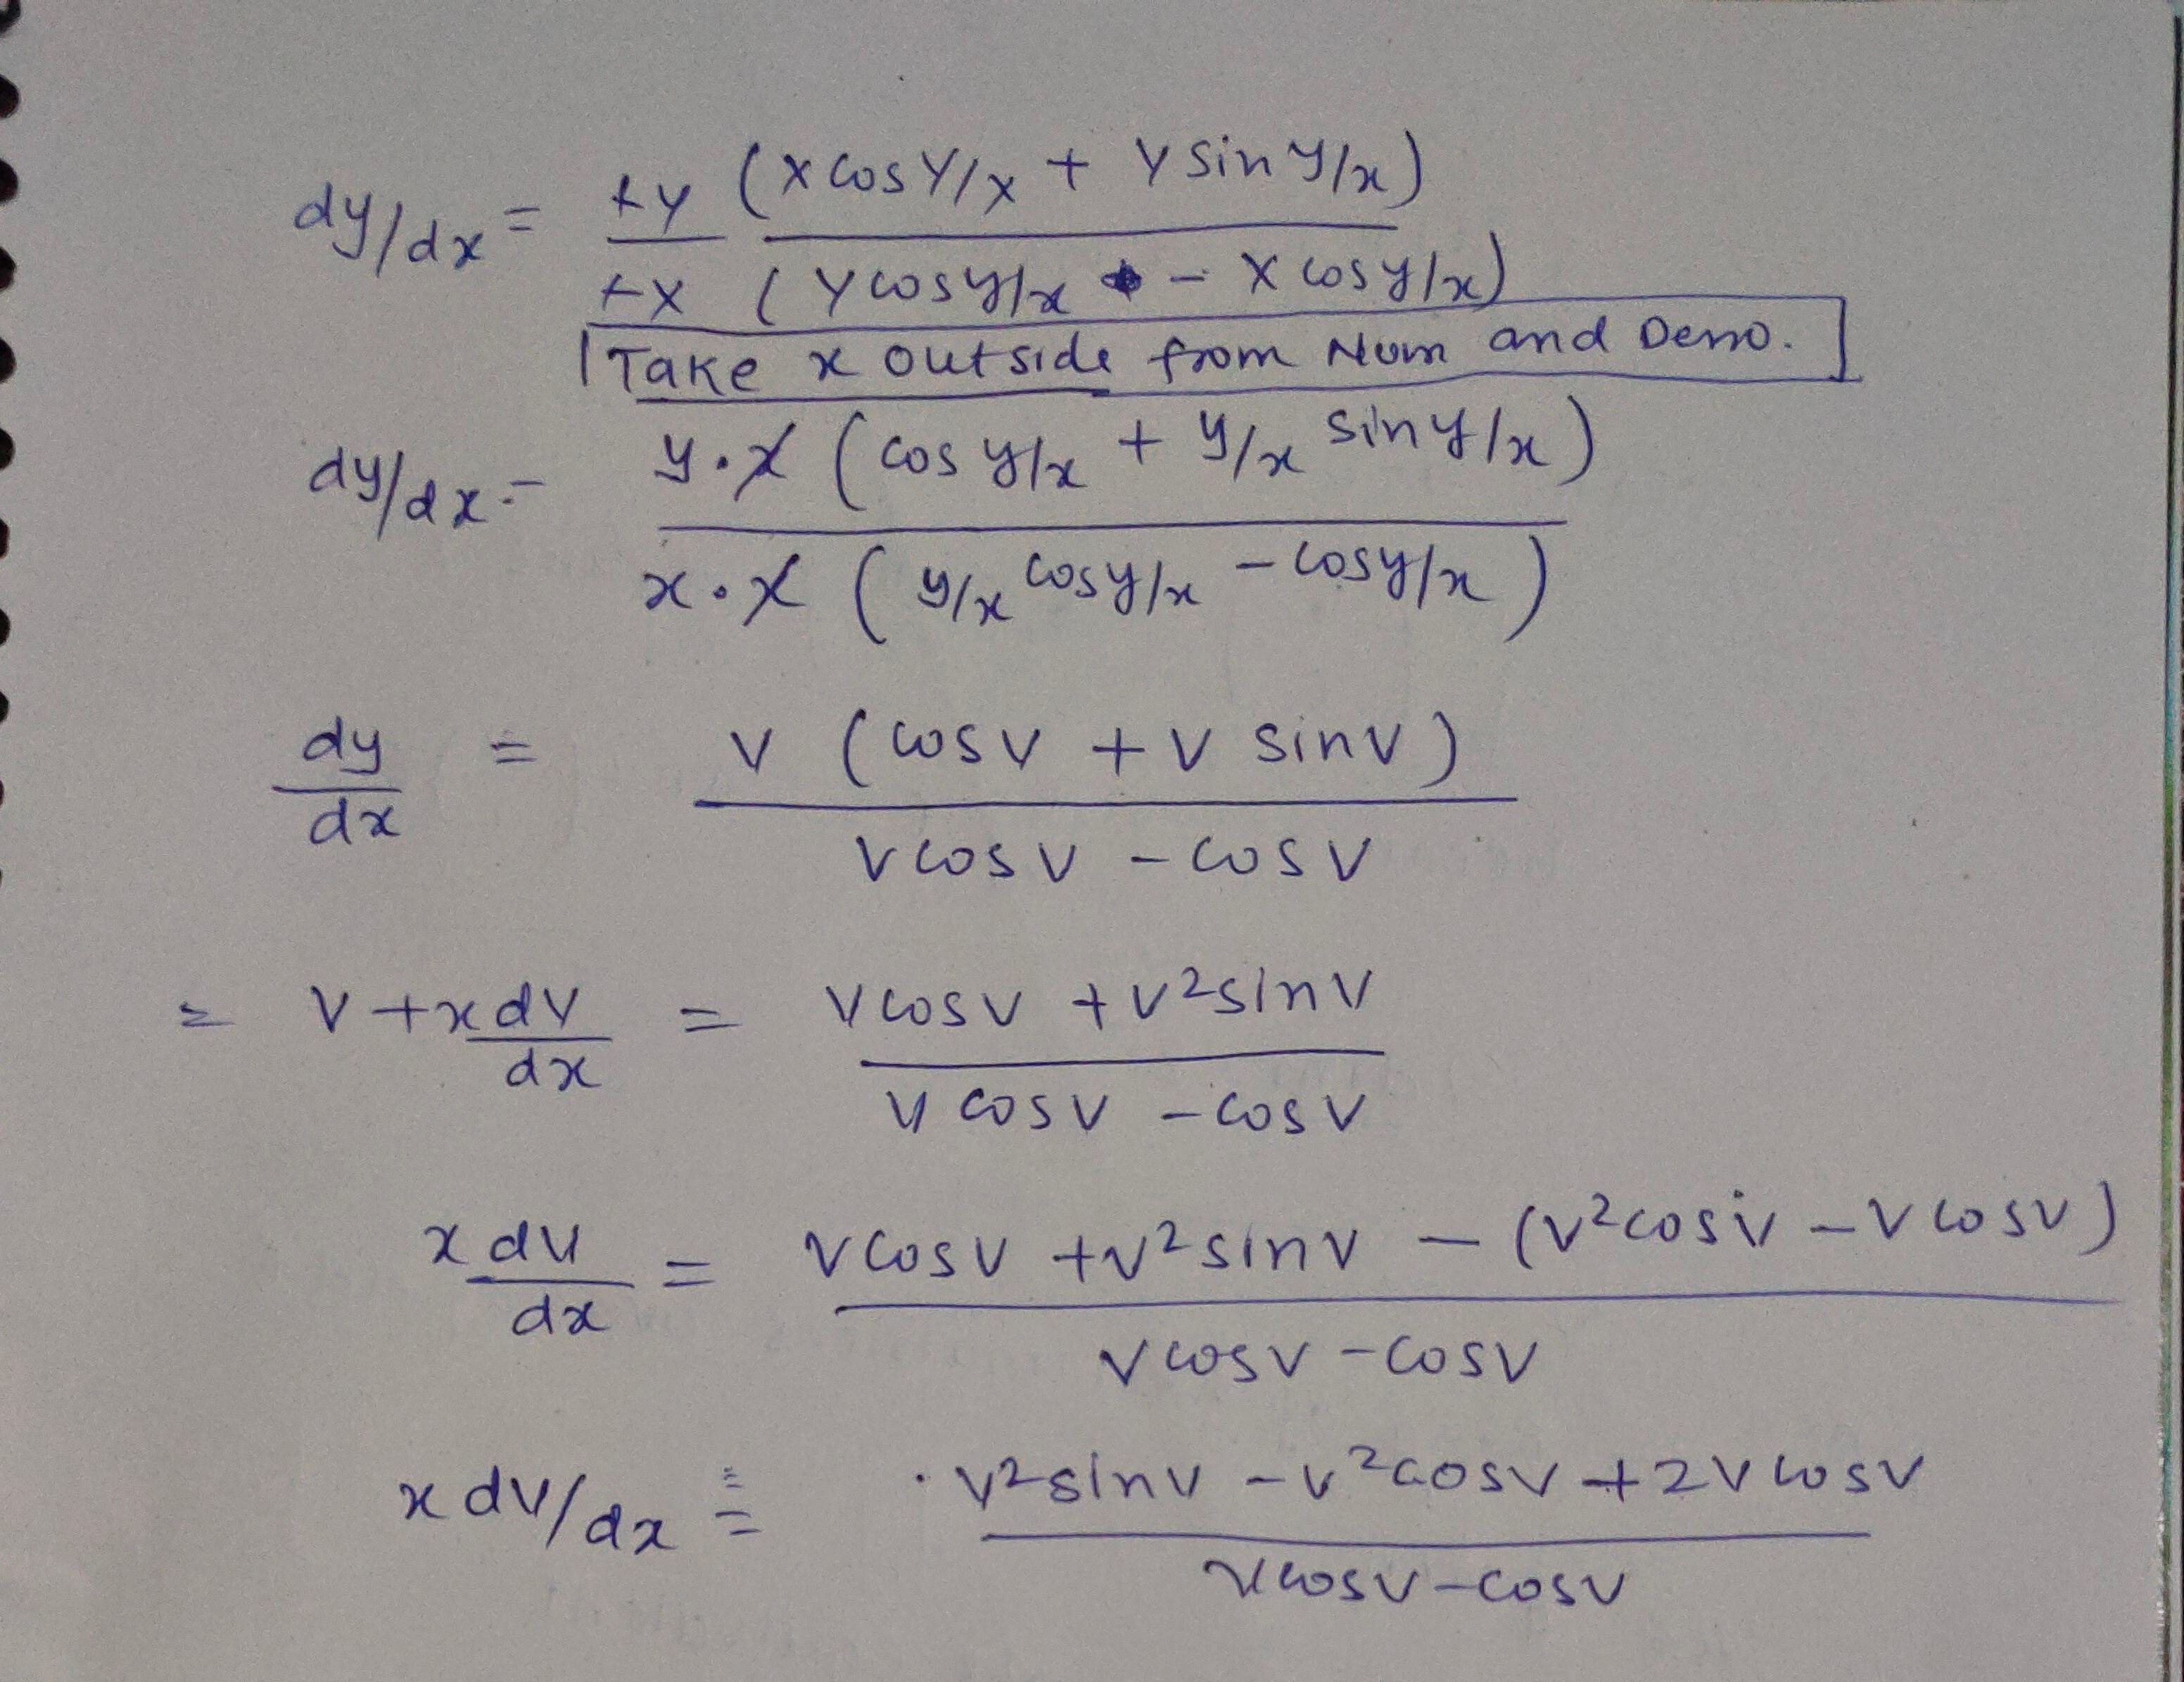 dy/dx = +y (x cos y/x + y sin y/x)
+x (y cos y/x - x cos y/x)
Take x outside from Num and Deno.
dy/dx = y.x (cos y/x + y/x sin y/x)
x.x (y/x cos y/x - cos y/x)
dy = v (cosv + v sinv)
dx vcosv - cosv
= v + x dv = vcosv + v²sinv
dx vcosv - cosv
x dv = vcosv + v²sinv - (v²cosv - vcosv)
dx vcosv - cosv
x dv/dx = v²sinv - v²cosv + 2vcosv
vcosv - cosv